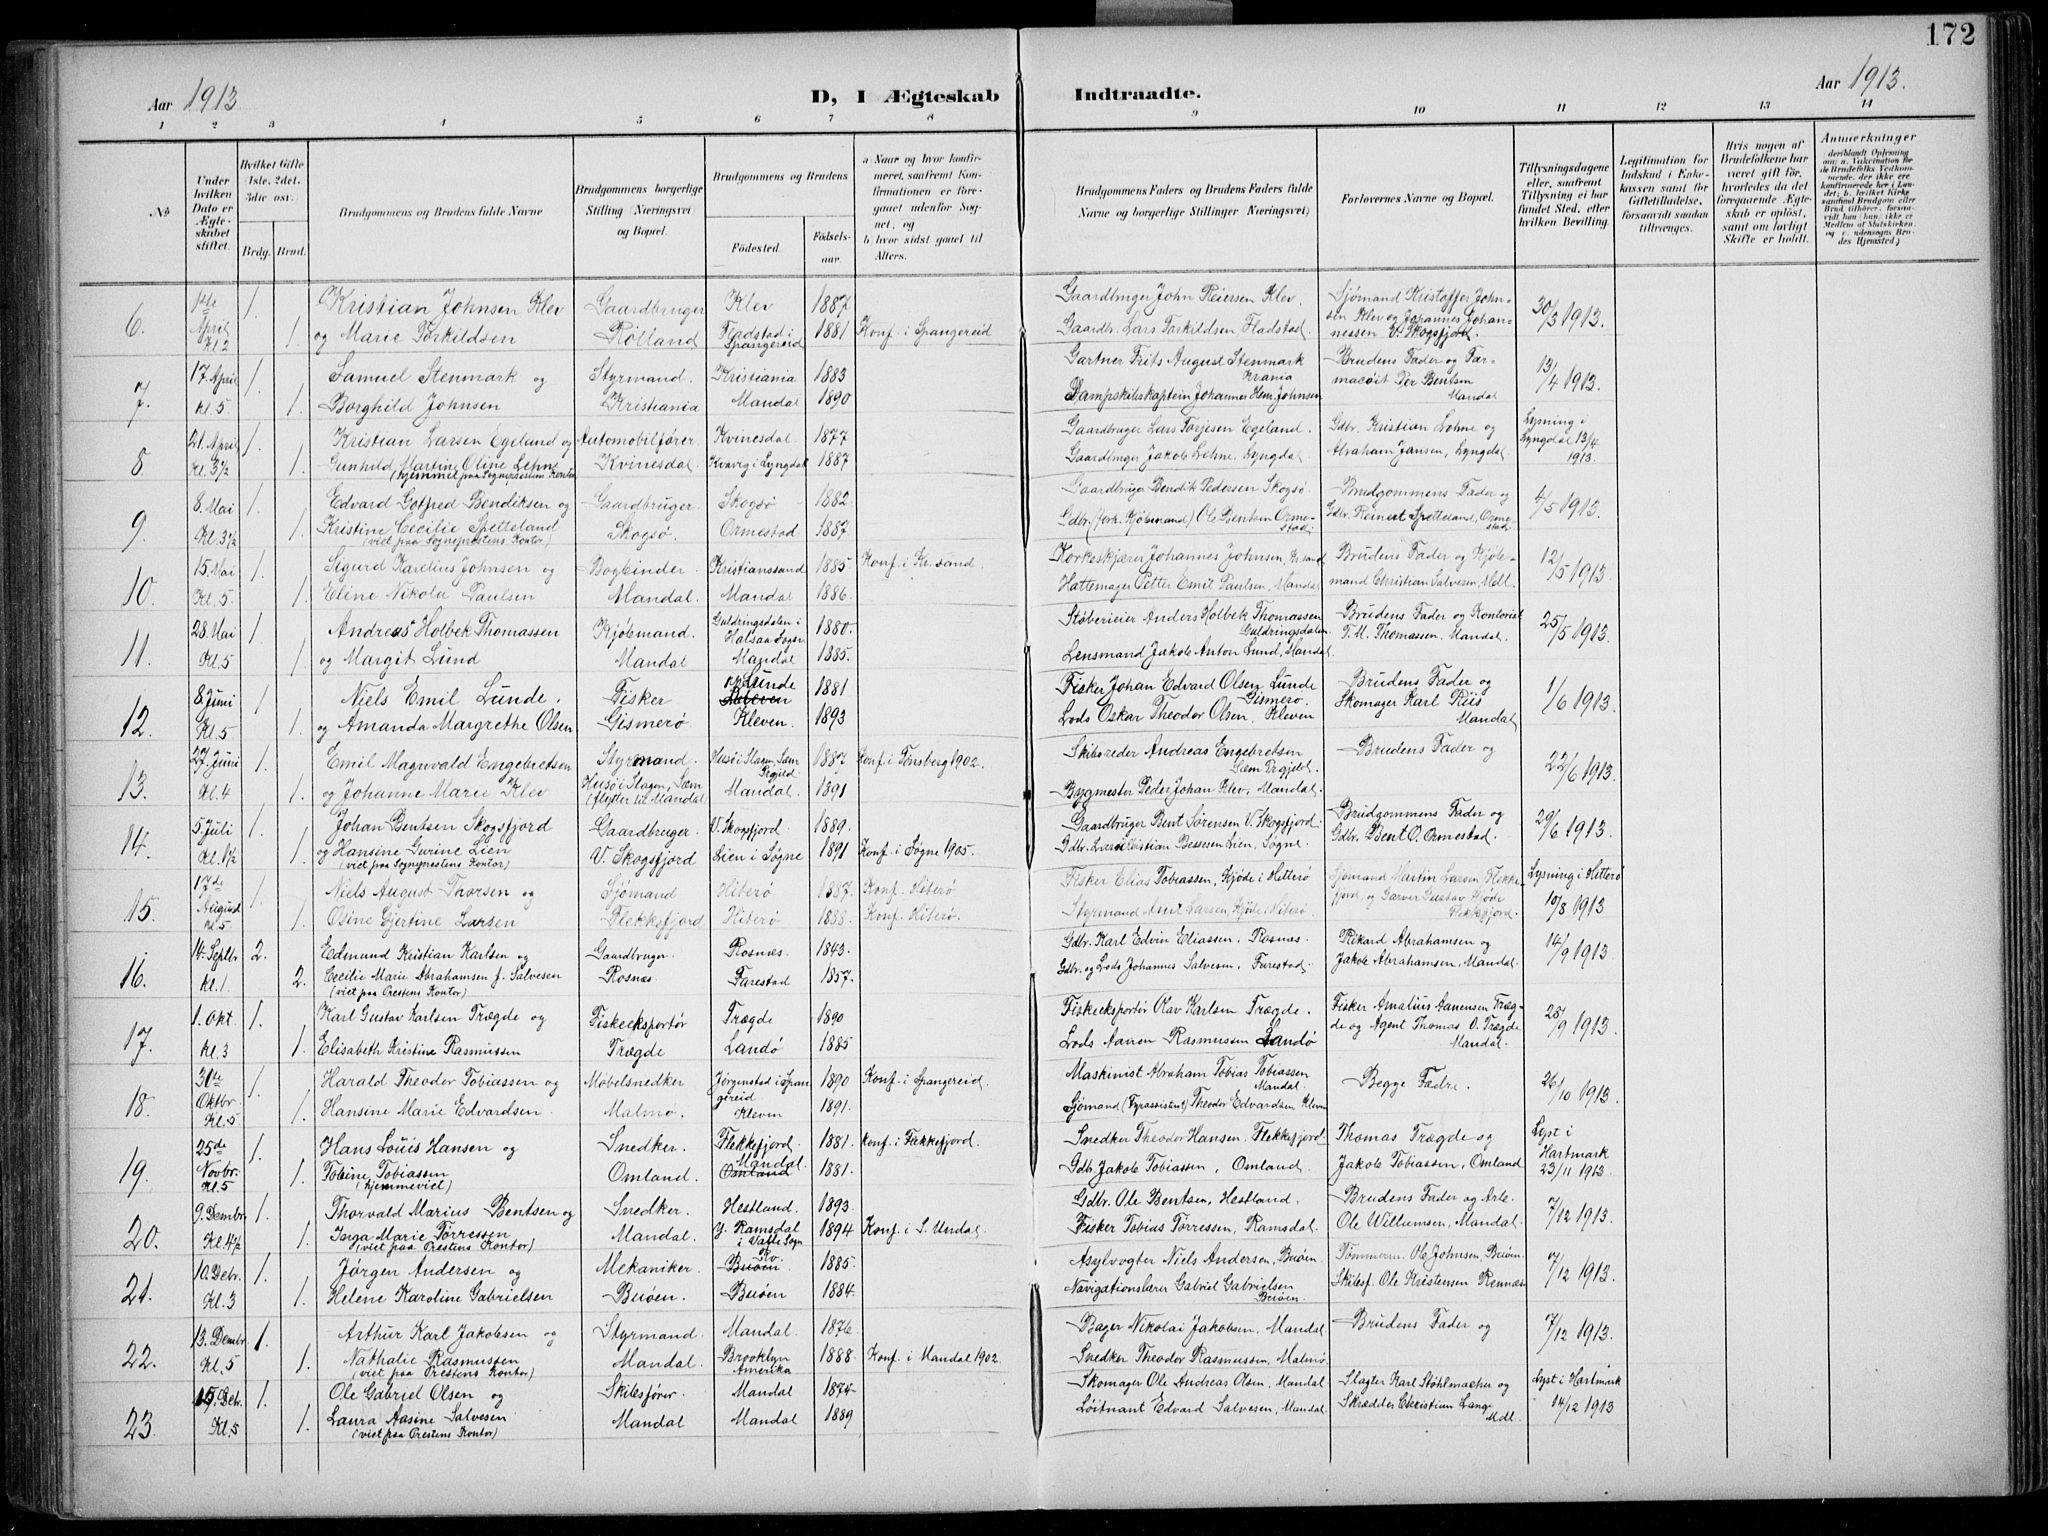 172
Aar 1913
D, I Ægteskab Indtraadte.
Aar 1913.
1 2 3 4 5 6 7 8 9 10 11 12 13 14
No
Under hvilken Dato er Ægteskabet stiftet.
Hvilket Gifte 1ste, 2det, 3die osv.
Brdg. Brud.
Brudgommens og Brudens fulde Navne
Brudgommens borgerlige Stilling (Næringsvei) og Bopæl.
Brudgommens og Brudens
Födested.
Födselsaar.
a) Naar og hvor konfirmeret, saafremt Konfirmationen er foregaaet udenfor Sognet, og
b) hvor sidst gaaet til Alters.
Brudgommens Faders og Brudens Faders fulde Navne og borgerlige Stillinger Næringsvei)
Forlovernes Navne og Bopæl.
Tillysningsdagene eller, saafremt Tillysning ei har fundet Sted, efter hvilken Bevilling.
Legitimation for Indskud i Enkekassen samt for Giftetilladelse, forsaavidt saadan tiltrænges.
Hvis nogen af Brudefolkene har været gift, for hvorledes da det foregaaende Ægteskab er oplöst, samt om lovligt Skifte er holdt.
Anmerkninger
6. 1ste April Kl 2 1. Kristian Johnsen Klev Gaardbruger Klev 1887 Gaardbruger John Reiersen Klev. Sjömand Kristoffer Johnsen Klev og Johannes Johannessen V. Skogsfjord. 30/3 1913.
1. og Marie Torkildsen Rölland Fladstad i Spangereid 1881 Konf. i Spangereid Gaardb. Lars Torkildsen Fladstad.
7. 17. April Kl. 5 1. Samuel Stenmark og Styrmand. Kristiania 1883 Gartner Frits August Stenmark Krania Brudens Fader og Farmacöit Per Bentsen Mandal 13/4 1913.
1. Borghild Johnsen Kristiania Mandal 1890 Dampskibskaptein Johannes Hem. Johnsen
8. 21. April Kl. 3½ 1. Kristian Larsen Egeland og Automobilförer. Kvinesdal. 1877 Gaardbruger Lars Torjesen Egeland. Gdbr. Kristian Lohne og Abraham Jansen, Lyngdal Lysning i Lyngdal 13/4 1913.
1. Gunhild Martine Oline Lehne (hjemmel paa Sogneprestens Kontor) Kvinesdal. Kvavig i Lyngdal 1887 Gaardbruger Jakob Lehne, Lyngdal
9. 8. Mai Kl. 3½ 1. Edvard Gotfred Bendiksen og Gaardbruger Skogsö 1882 Gaardbruger Bendik Pedersen Skogsö Brudgommens Fader og Gdbr. Reinert Spetteland, Ormestad. 4/5 1913.
1. Kristine Cecilie Spetteland (viet paa Sogneprestens Kontor) Skogsö. Ormestad 1887 Gdbr. (forh. Kjöbmand) Ole Bentsen Ormestad.
10. 15. Mai Kl. 5 1. Sigurd Karelius Johnsen og Bogbinder. Kristianssand 1885 Konf. i Kr.sand. Korkeskjærer Johannes Johnsen, Kr.sand Brudens Fader og Kjöbmand Christian Salvesen, Mdl. 12/5 1913.
1. Eline Nikola Paulsen Mandal. Mandal 1886. Hattemager Petter Emil Paulsen, Mandal
11. 28. Mai Kl. 5 1 Andreas Holbek Thomassen Kjöbmand. Guldringsdalen i Halsaa Sogn 1880. Stöberieier Anders Holbek Thomassen Guldringsdalen. Brudens Fader og Kontorist T. M. Thomassen, Mandal. 25/5 1913.
1 og Margit Lund Mandal Mandal 1885. Lensmand Jakob Anton Lund, Mandal.
12. 8. Juni Kl. 5 1 Niels Emil Lunde. Fisker Lunde Kleven 1881 Fisker Johan Edvard Olsen Lunde Gismerö. Brudens Fader og Skomager Karl Riis Mandal 1/6 1913.
1. og Amanda Margrethe Olsen Gismerö. Kleven. 1893 Lods Oskar Theodor Olsen, Kleven
13. 27. Juni Kl. 4 1. Emil Magnvald Engebretsen Styrmand. Husö i Slagen, Sæm Prgjeld 1887 Konf. i Tönsberg 1902. Skibsreder Andreas Engebretsen Sæm Prgjeld. Brudens Fader og 22/6 1913.
1. og Johanne Marie Klev Husö i Slagen, Sæm (flytter til Mandal) Mandal. 1891 Bygmester Peder Johan Klev, Mandal.
14. 5. Juli Kl. 1½ 1. Johan Bentsen Skogsfjord Gaardbruger V. Skogsfjord. 1889. Gaardbruger Bent Sörensen V. Skogsfjord. Brudgommens Fader og Gdbr. Bent O. Ormestad. 29/6 1913.
1. og Hansine Gurine Lien (viet paa Sogneprestens Kontor) V. Skogsfjord Lien i Søgne 1891 Konf. i Søgne 1905. Bessesen Lien, Søgne.
15. 17de August Kl. 5 1. Niels August Thorsen og Sjömand Hiterö 1887. Konf. Hiterö Fisker Elias Tobiassen, Kjöde i Hitterö Sjömand Martin Larsen Flekkefjord, og Garver Gustav Kjöde Flekkefjord. Lysning i Hitterö 10/8 1913
1. Osine Gjertine Larsen Flekkefjord Hiterö 1888. Konf. Hiterö. Styrmand Arnt Larsen, Kjöde i Hiterö.
16. 14. Septbr Kl. 1 2. Edmund Kristian Karlsen og Gaardbruger. Rosnæs. 1843. Gdbr. Karl Edvin Eliassen. Rosnæs. Rikard Abrahamsen og Jakob Abrahamsen, Mandal. 14/9 1913.
2. Cecilie Marie Abrahamsen f. Salvesen (viet paa Prestens Kontor) Rosnæs. Farestad 1857. Gdbr. og Lods Johannes Salvesen, Farestad.
17. 1. Okt Kl. 3 1. Karl Gustav Karlsen Trægde og Fiskeeksportör Trægde 1890 Fiskeeksportör Olav Karlsen Trægde. Fisker Amalius Aanensen Trægde og Agent Thomas O. Trægde Mandal. 28/9 1913.
1. Elisabeth Kristine Rasmussen Trægde Landö 1885 Lods Aanen Rasmussen Landö
18. 30te Oktbr Kl. 5 1. Harald Theodor Tobiassen og Möbelsnedker Jörgenstad i Spangereid 1890 Konf. i Spangereid. Maskinist Abraham Tobias Tobiassen Mandal. Begge Fædre. 26/10 1913.
1. Hansine Marie Edvardsen. Malmö. Kleven 1891. Sjömand (Fyrassistent) Theodor Edvardsen Kleven
19. 25de Novbr. Kl. 5 1. Hans Louis Hansen og Snedker. Flekkefjord. 1881. Konf. i Flekkefjord. Snedker Theodor Hansen. Flekkefjord. Thomas Trægde og Jakob Tobiassen, Omland Lyst i Hartmark 23/11 1913.
1. Tobine Tobiassen (hjemmeviet) Omland. Mandal. Omland 1881. Gdbr. Jakob Tobiassen, Omland.
20. 9. Dembr. Kl. 4½ 1. Thorvald Marius Bentsen og Snedker. Hestland. 1893. Gdbr. Ole Bentsen, Hestland. Brudens Fader og Arb. Ole Willumsen, Mandal. 7/12 1913.
1. Inga Marie Törressen (viet paa Prestens Kontor) Mandal. Y. Ramsdal i Valle Sogn 1894 Konf. i S. Undal. Fisker Tobias Törressen, Ramsdal.
21. 10. Debr. Kl. 3 1. Jörgen Andersen og Mekaniker. Buöen. 1885. Asylvogter Niels Andersen, Buöen Tömmerm. Ole Johnsen, Buöen. Skibsf. Ole Kristensen Rennæs 7/12 1913.
1. Helene Karoline Gabrielsen Buöen. Buöen 1884. Navigationslærer Gabriel Gabrielsen Buöen.
22. 13. Dembr. Kl. 5 1. Arthur Karl Jakobsen og Styrmand. Mandal. 1876. Bager Nikolai Jakobsen, Mandal. Brudens Fader og 7/12 1913.
1. Nathalie Rasmussen (viet paa Prestens Kontor) Mandal. Brooklyn Amerika 1888. Konf. i Mandal 1902. Snedker Theodor Rasmussen, Malmö.
23. 15. Debr. Kl. 5 1. Ole Gabriel Olsen og Skibsförer. Mandal 1874. Skomager Ole Andreas Olsen, Mandal. Slagter Karl Stöhlmacher og Skrædder Christian Lang Mdl. Lyst i Hartmark 14/12 1913
1. Laura Aasine Salvesen (viet paa Prestens Kontor) Mandal Mandal 1889 Löitnant Edvard Salvesen, Mandal.